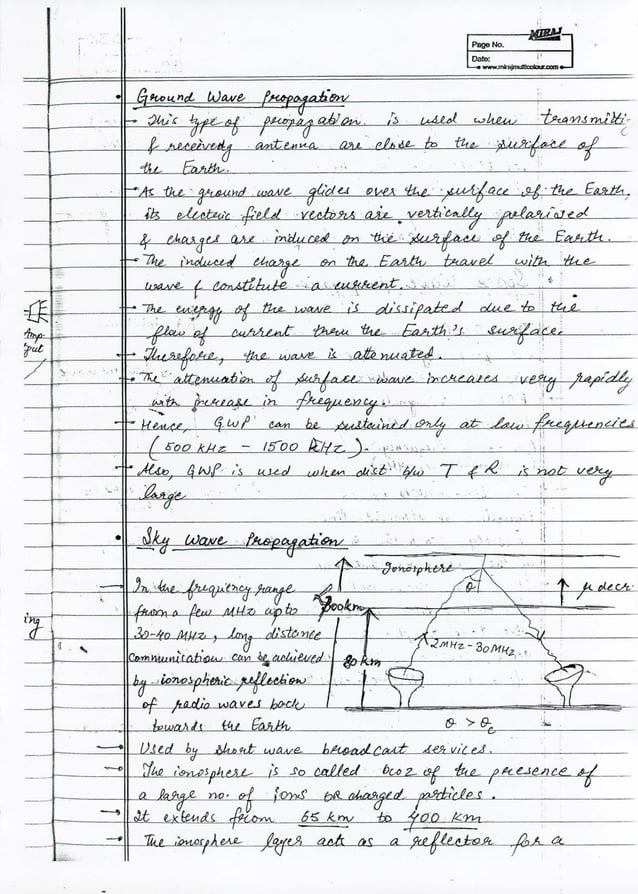 MIRAJ
Page No.
Date:
www.mirajmulticolour.com
• Ground Wave Propagation
→ This type of propagation is used when transmitti
& receiving antenna are close to the surface of
the Earth.
→ As the ground wave glides over the surface of the Earth,
its electric field vectors are vertically polarised
& charges are induced on the surface of the Earth.
→ The induced charge on the Earth travel with the
wave & constitute a current.
→ The energy of the wave is dissipated due to the
flow of current thru the Earth's surface.
→ Therefore, the wave is attenuated.
→ The attenuation of surface wave increases very rapidly
with increase in frequency.
→ Hence, GWP can be sustained only at low frequencies
(500 kHz - 1500 kHz).
→ Also, GWP is used when dist b/w T & R is not very
large
• Sky Wave Propagation
→ In the frequency range
from a few MHz upto
30-40 MHz, long distance
communication can be achieved
by ionospheric reflection
of radio waves back
towards the Earth
Ionosphere
θ
μ decr.
300km
2MHz-30MHz
80 km
θ > θc
→ Used by short wave broadcast services.
→ The ionosphere is so called bcoz of the presence of
a large no. of ions OR charged particles.
→ It extends from 65 km to 400 km
→ The ionosphere layer acts as a reflector for a
ing